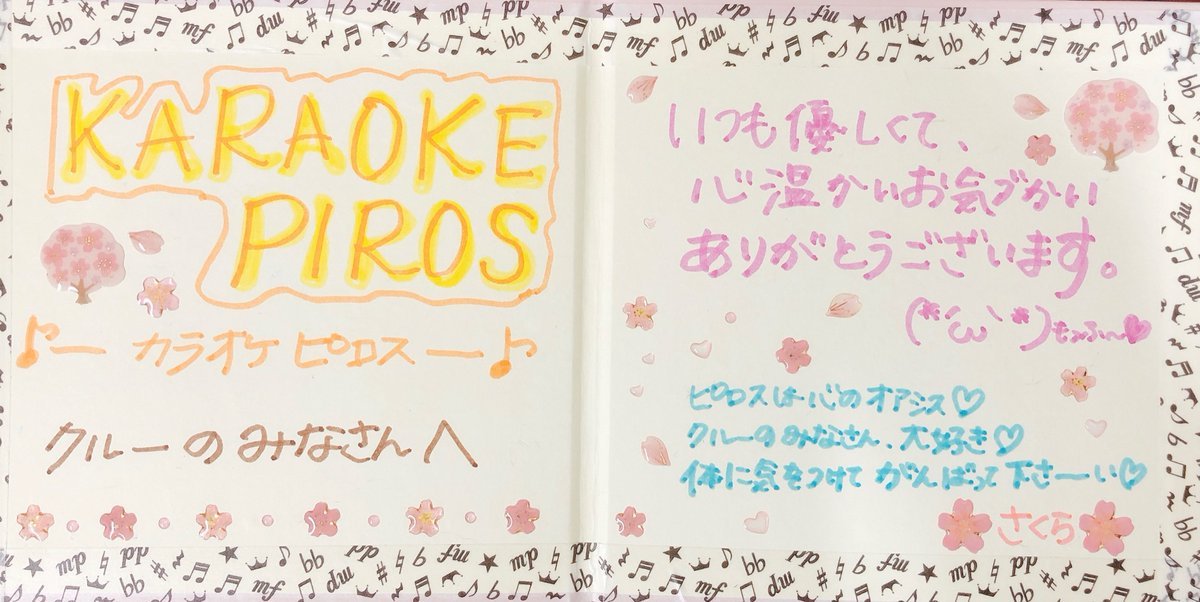 KARAOKE
PIROS
♪ー カラオケ ピロス ー♪
クルーのみなさんへ
いつも優しくて、
心温かいお気づかい
ありがとうございます。
(*´ω`*)もふふ〜♥
ピロスは心のオアシス♡
クルーのみなさん、大好き♡
体に気をつけて がんばって下さーい♡
さくら